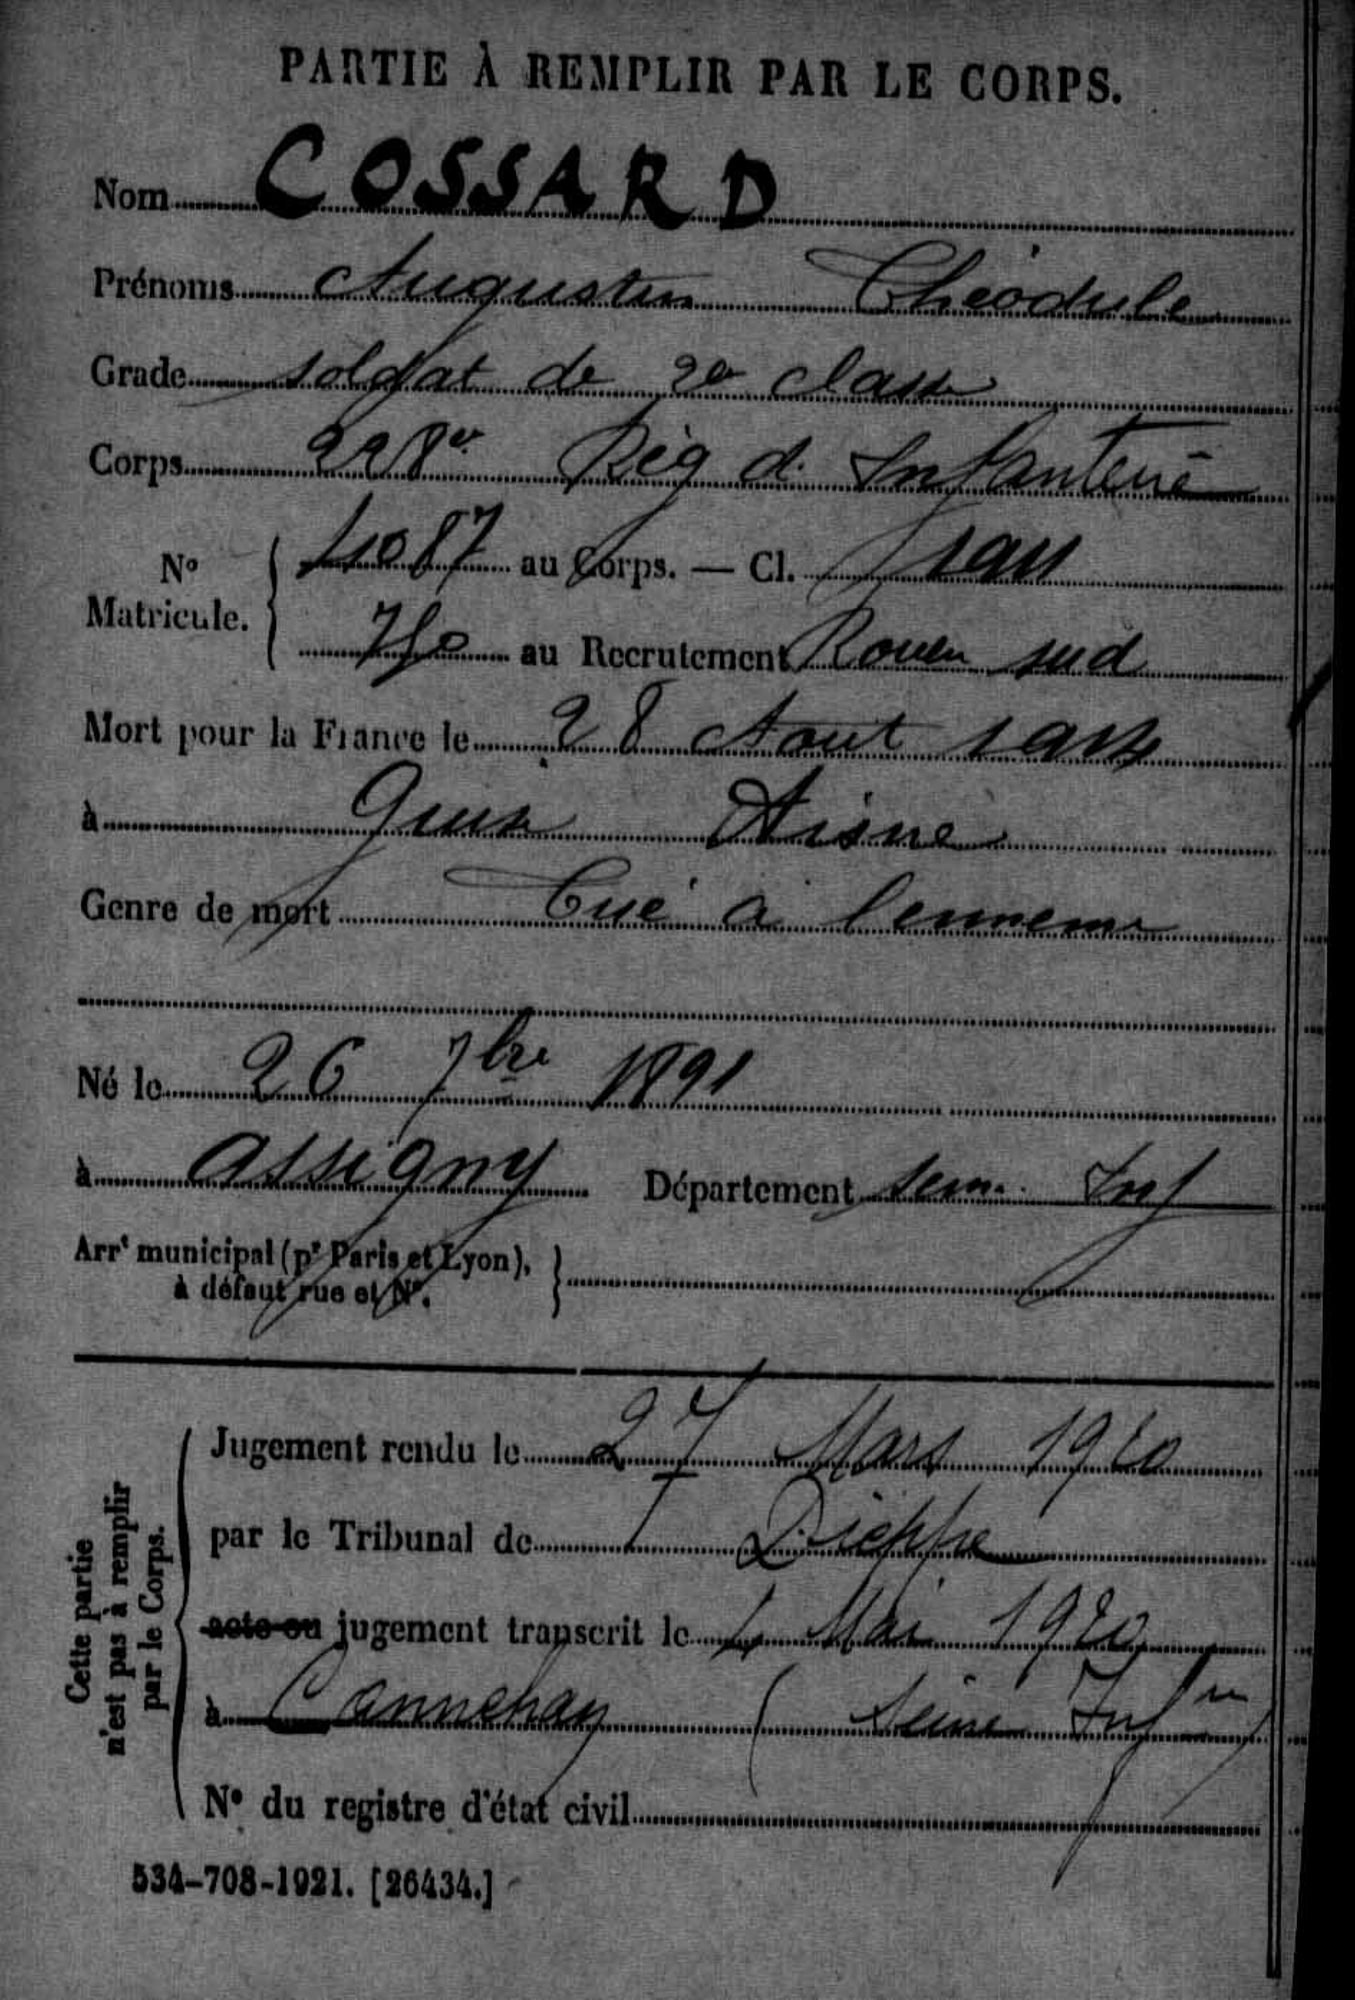 PARTIE À REMPLIR PAR LE CORPS.
Nom COSSARD
Prénoms Augustin Théodule
Grade soldat de 2e classe
Corps 228e Rég d. Infanterie
No Matricule. 4087 au Corps. — Cl. 1911
750 au Recrutement Rouen sud
Mort pour la France le 28 Aout 1914
à Guise Aisne
Genre de mort Tué à l'ennemi
Né le 26 7bre 1891
à Assigny Département Sein. Inf
Arrt municipal (pr Paris et Lyon),
à défaut rue et No.
Cette partie
n'est pas à remplir
par le Corps.
Jugement rendu le 27 Mars 1920
par le Tribunal de Dieppe
acte ou jugement transcrit le 4 Mai 1920
à (Seine Infre)
No du registre d'état civil
534-708-1921. [26434.]